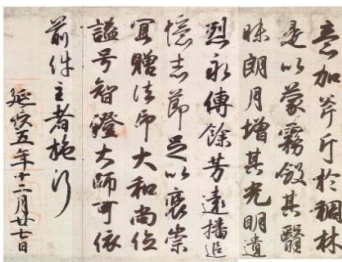 加斧斤於稠林
是以蒙霧斂其翳
昧朗月增其光明遺
烈永傳餘芳遠播追
憶志節足以褒崇
冝贈法印大和尚位
謚号智證大師可依
前件主者施行
延長五年十二月廿七日